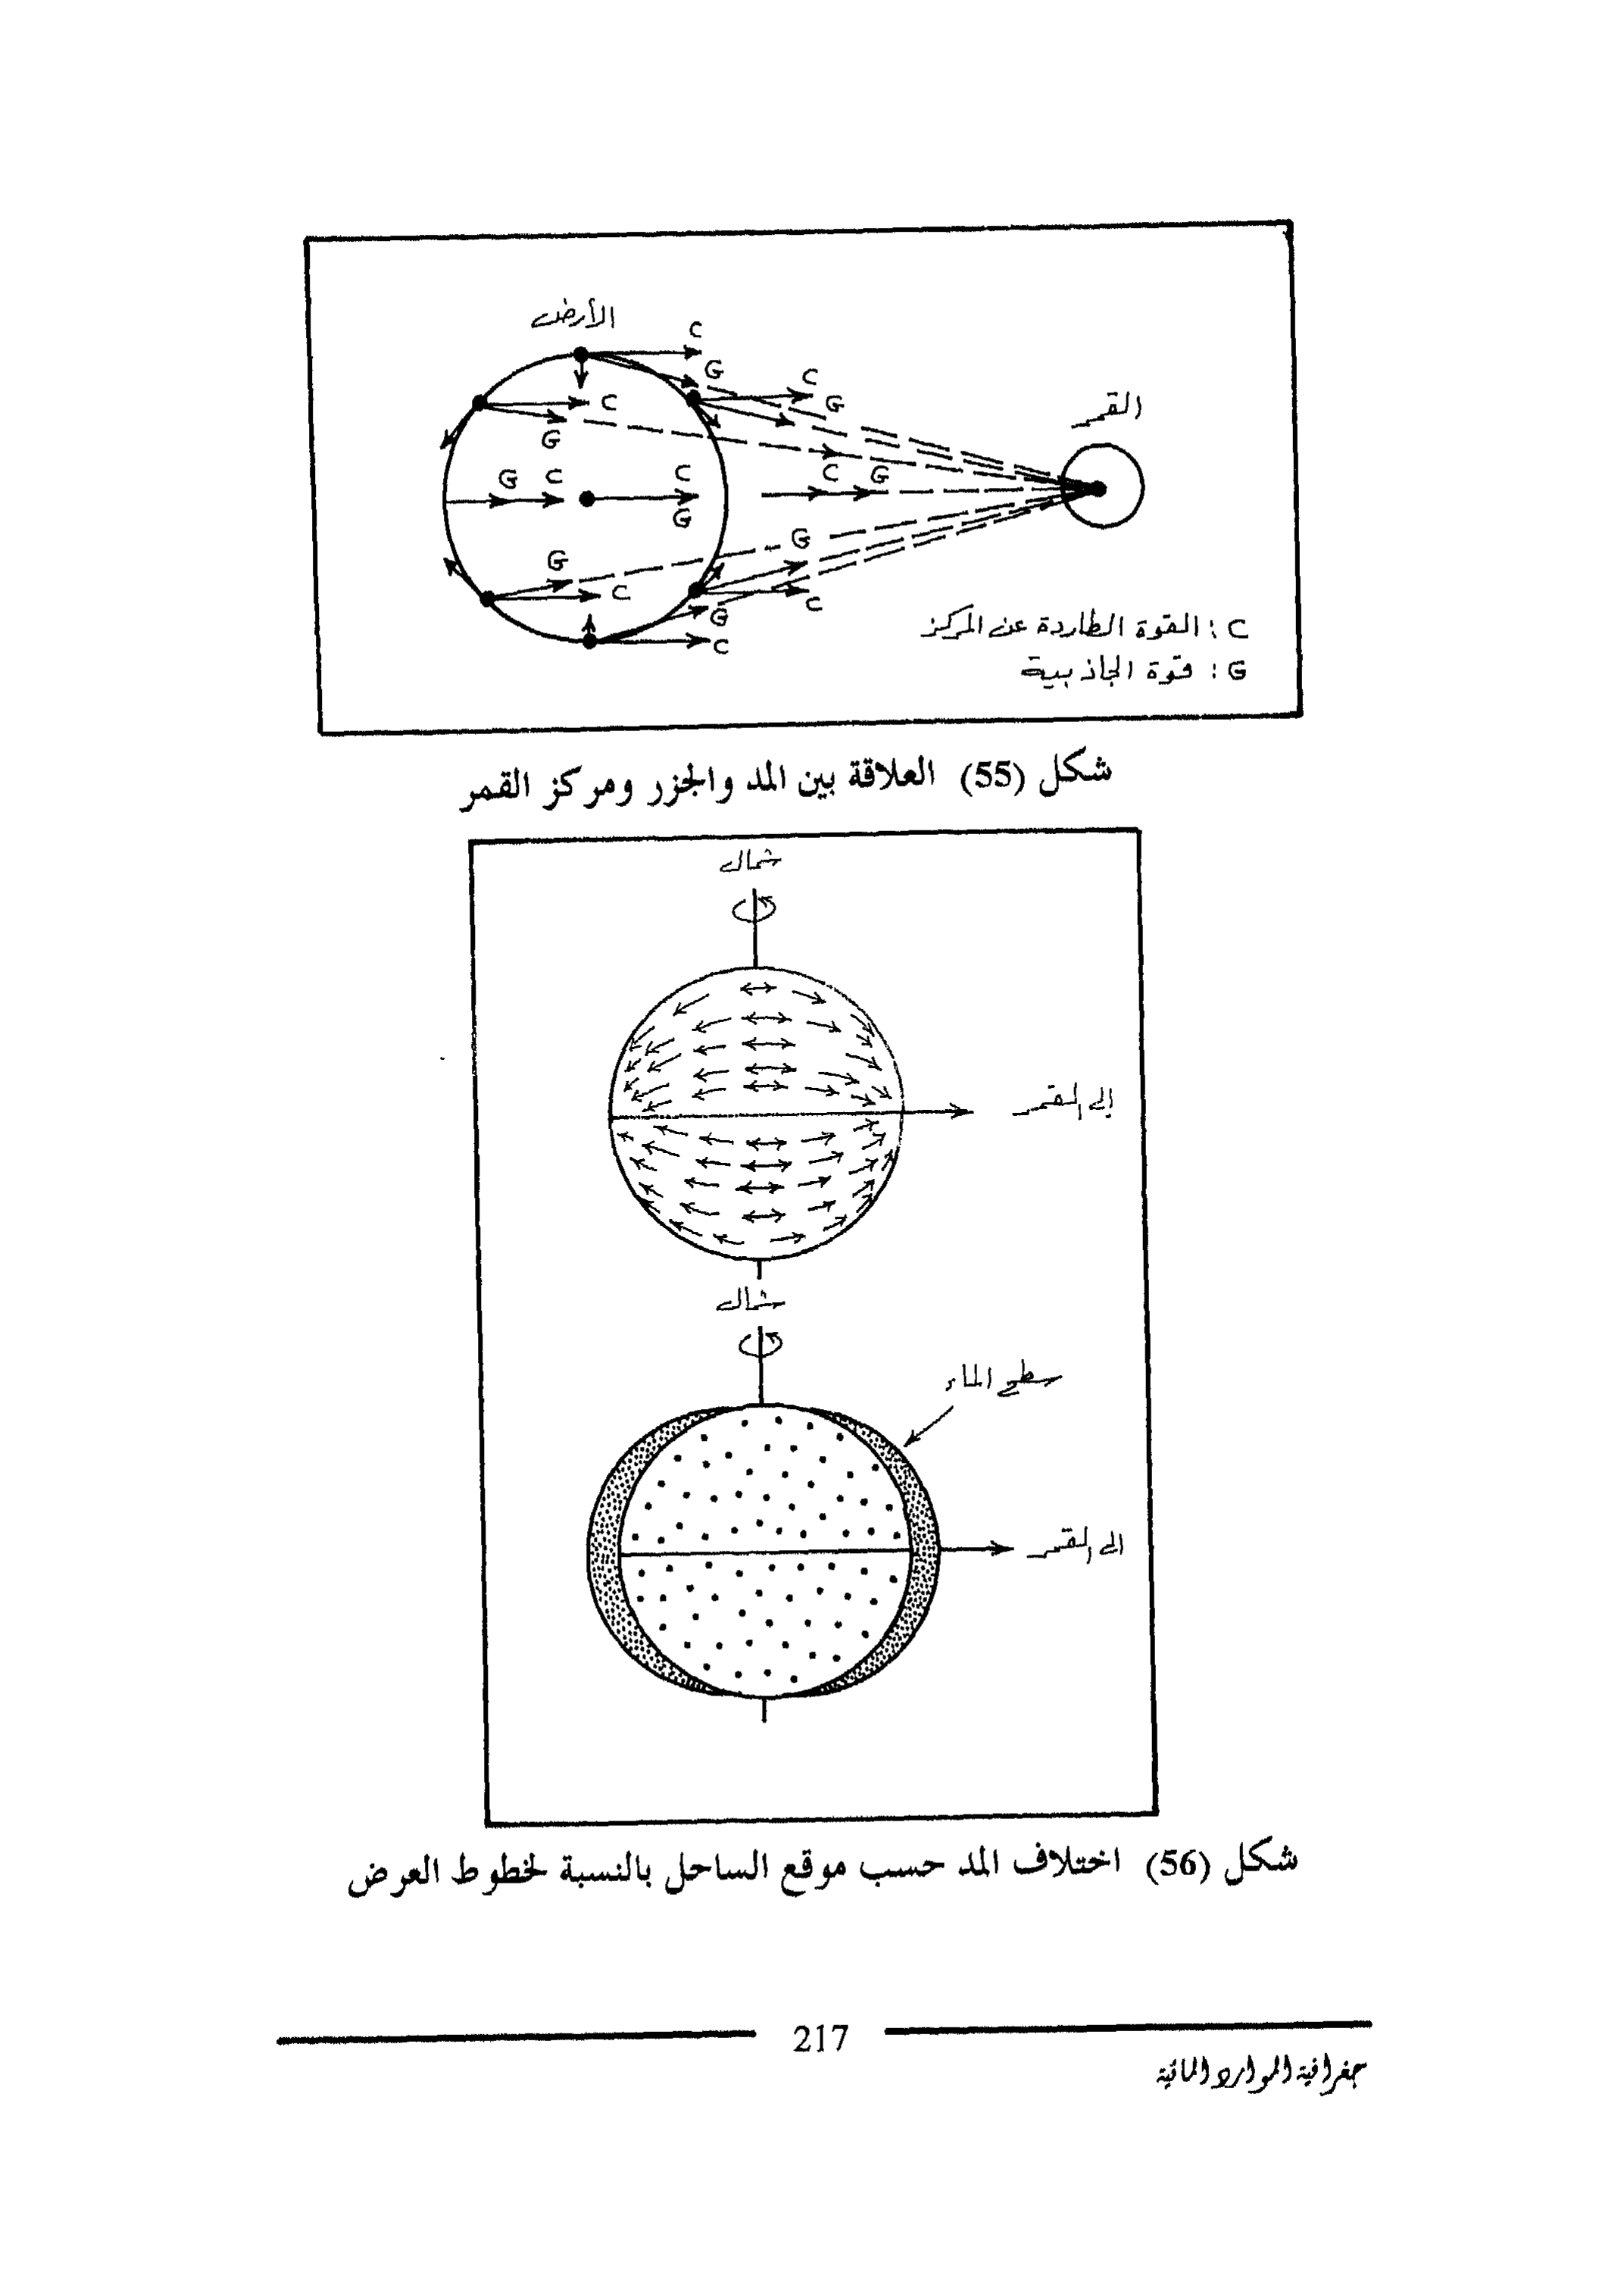 الأرض
C
G
C
G
القمر
C
G
G C
C
G
C G
G
G
C
C
G
C
C : القوة الطاردة عن المركز
G : قوة الجاذبية
شكل (55) العلاقة بين المد والجزر ومركز القمر
شمال
إلى القمر
شمال
سطح الماء
الى القمر
شكل (56) اختلاف المد حسب موقع الساحل بالنسبة لخطوط العرض
217
جغرافية الموارد المائية